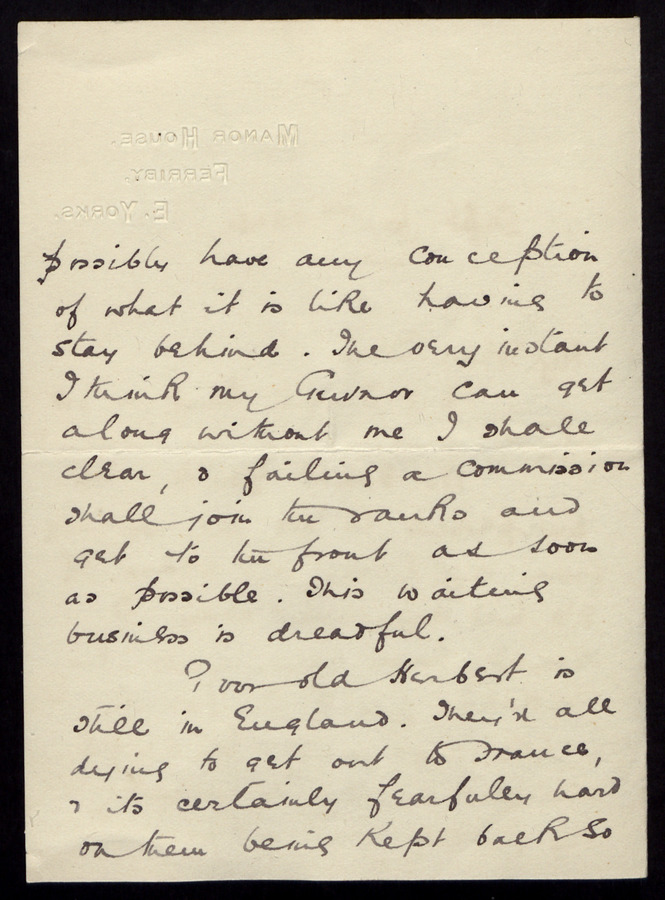 MANOR HOUSE.
FERRIBY.
E. YORKS.
possibly have any conception
of what it is like having to
stay behind. The very instant
I think my Guvnor can get
along without me I shall
clear, & failing a commission
shall join the ranks and
get to the front as soon
as possible. This waiting
business is dreadful.
Poor old Herbert is
still in England. They're all
dying to get out to France,
& its certainly fearfully hard
on them being kept back so